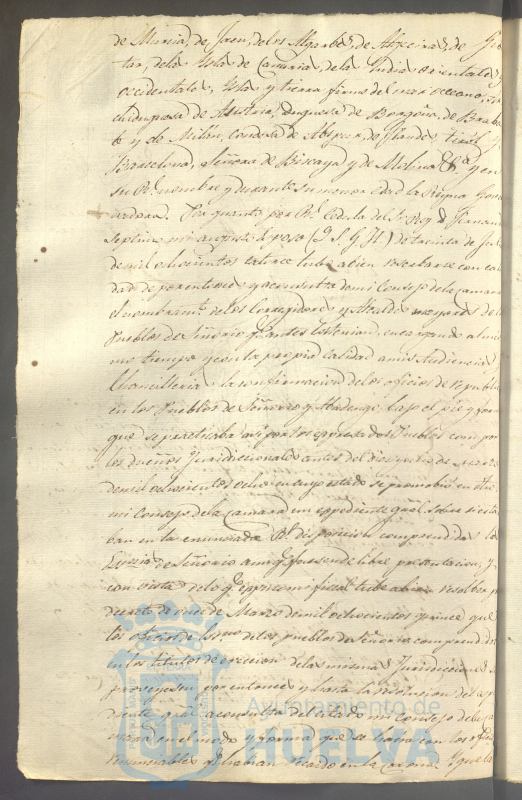 de Murcia, de Jaen, de los Algarbes, de Algeciras, de Gi
tar, de las Islas de Canaria, de las Indias orientales y
occidentales, Islas y tierra firme del mar occeano; Ar
chiduquesa de Austria, Duquesa de Borgoña, de Braba
te y de Milan, Condesa de Abspur, de Flandes, Tirol y
Barcelona, Señora de Biscaya y de Molina &ª y en
su Rl. nombre y durante su menor edad la Reyna Gover
nadora. Por quanto por Rl. Cedula del Sr. Rey D. Fernan
Septimo mi augusto Esposo (Q. S. G. H.) de treinta de Ju
de mil ochocientos catorce tubo a bien reserbarse con cali
dad de por entonces y a consulta de mi Consejo de la Camara
el nombramto. de los Corregidores y Alcaldes mayores de los
Pueblos de Señorio q. antes los tenian, encargando al mis
mo tiempo y con la propia calidad a mis Audiencias y
Chancillerias la confirmacion de los oficios de republica
en los Pueblos de Señorio y Abadengo bajo el pie y forma
que se practicaba asi por los espresados Pueblos como por
los dueños Jurisdicionales antes del de Marzo
de mil ochocientos ocho en cuyo estado se promobió en
mi Consejo de la Camara un expediente gral. sobre si esta
ban en la enunciada Rl. disposicion comprendidas las
de Señorio aunq. fuesen de libre presentacion, y
con vista de lo q. espuso mi fiscal tube a bien resolber por
decreto de de Marzo de mil ochocientos quince que
los oficios de de los pueblos de Señorio comprendidos
en los titulos de egrecion de las mismas Jurisdicciones se
proveyesen por entonces y hasta la resolucion del espe
diente gral. a consulta del citado mi Consejo de la Ca
mara en el modo y forma que se hacia con los oficios
renunciables q. habian recaido en la corona y que la
Ayuntamiento de
HUELVA